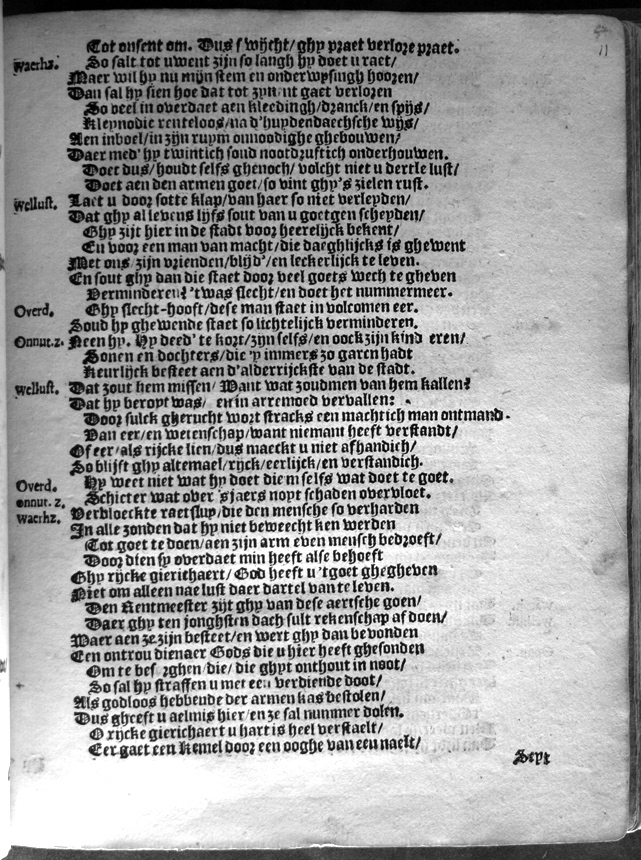 11
Tot onsent om. Dus swijcht/ ghy praet verlore praet.
Waerhz. So salt tot uwent zijn so langh hy doet u raet/
Maer wil hy nu mijn stem en onderwysingh hooren/
Dan sal hy sien hoe dat tot zijn'nt gaet verloren
So veel in overdaet aen kleedingh/dranck/en spijs/
Kleynodie renteloos/na d'huydendaechsche wijs/
Aen inboel/in zijn ruym onnoodighe ghebouwen/
Daer med' hy twintich soud nootdruftich onderhouwen.
Doet dus/houdt selfs ghenoch/ volcht niet u dertle lust/
Doet aen den armen goet/so vint ghy's zielen rust.
Wellust. Laet u door sotte klap/van haer so niet verleyden/
Dat ghy al levens lijfs sout van u goetgen scheyden/
Ghy zijt hier in de stadt voor heerelijck bekent/
En voor een man van macht/die daeghlijcks is ghewent
Met ons zijn vrienden/blijd'/en leckerlijck te leven.
En sout ghy dan die staet door veel goets wech te gheven
Verminderen? 'twas slecht/en doet het nummermeer.
Overd. Ghy slecht-hooft/dese man staet in volcomen eer.
Soud hy ghewende staet so lichtelijck verminderen.
Onnut.z. Neen hy. Hy deed' te kort/zijn selfs/en oock zijn kind eren/
Sonen en dochters/die 'y immers zo garen hadt
Keurlijck besteet aen d'alderrijckste van de stadt.
Wellust. Dat zout hem missen/ Want wat zoudmen van hem kallen?
Dat hy beroyt was/ en in arremoed vervallen:
Door sulck gherucht wort stracks een machtich man ontmand.
Van eer/en wetenschap/want niemant heeft verstandt/
Of eer/als rijcke lien/dus maeckt u niet afhandich/
So blijft ghy altemael/rijck/eerlijck/en verstandich.
Overd. Hy weet niet wat hy doet die mselfs wat doet te goet.
onnut. z. Schicter wat over 'sjaers noyt schaden overvloet.
Waerhz. Verbloeckte raetslup/die den mensche so verharden
In alle zonden dat hy niet beweecht ken werden
Tot goet te doen/aen zijn arm even mensch bedroeft/
Door dien sy overdaet min heeft alse behoeft
Ghy rijcke gierichaert/ God heeft u 'tgoet ghegheven
Niet om alleen nae lust daer dartel van te leven.
Den Rentmeester zijt ghy van dese aertsche goen/
Daer ghy ten jonghsten dach sult rekenschap af doen/
Waer aen ze zijn besteet/en wert ghy dan bevonden
Een ontrou dienaer Gods die u hier heeft ghesonden
Om te bes rghen/die/ die ghyt onthout in noot/
So sal hy straffen u met een verdiende doot/
Als godloos hebbende der armen kas bestolen/
Dus gheeft u aelmis hier/en ze sal nummer dolen.
O rijcke gierichaert u hart is heel verstaelt/
Eer gaet een Kemel door een ooghe van een naelt/
Sept